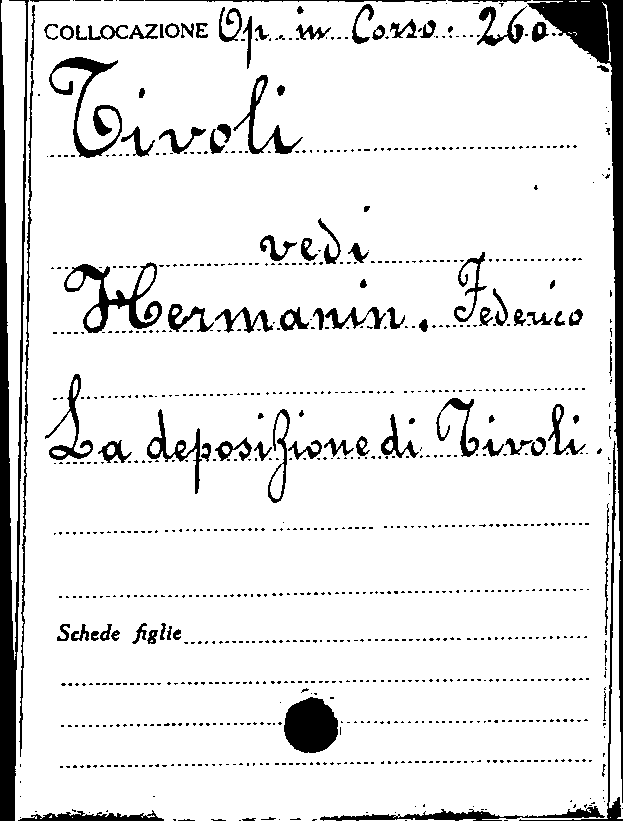 COLLOCAZIONE Op. in Corso. 260
Tivoli
vedi
Hermanin. Federico
La deposizione di Tivoli.
Schede figlie